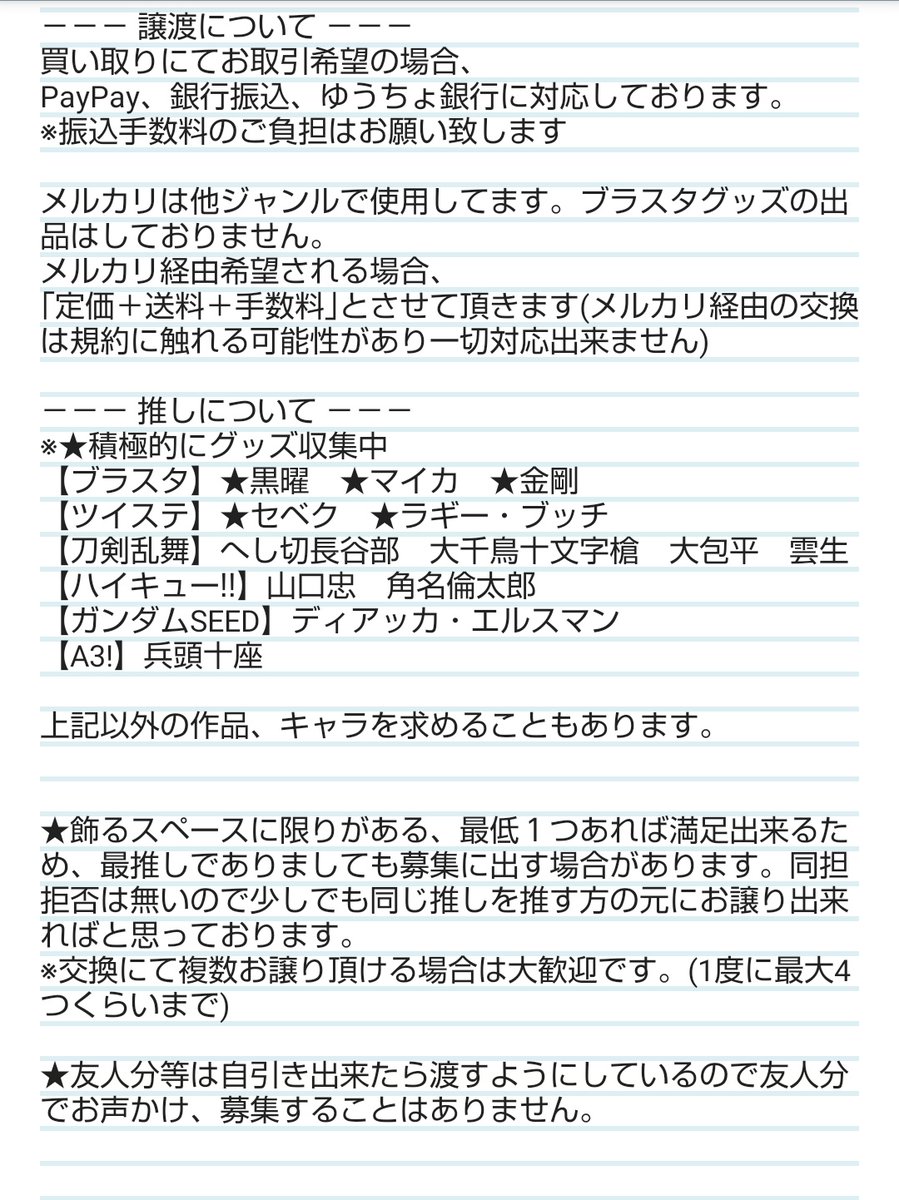 －－－ 譲渡について －－－
買い取りにてお取引希望の場合、
PayPay、銀行振込、ゆうちょ銀行に対応しております。
※振込手数料のご負担はお願い致します
メルカリは他ジャンルで使用してます。ブラスタグッズの出
品はしておりません。
メルカリ経由希望される場合、
｢定価＋送料＋手数料｣とさせて頂きます(メルカリ経由の交換
は規約に触れる可能性があり一切対応出来ません)
－－－ 推しについて －－－
※★積極的にグッズ収集中
【ブラスタ】★黒曜　★マイカ　★金剛
【ツイステ】★セベク　★ラギー・ブッチ
【刀剣乱舞】へし切長谷部　大千鳥十文字槍　大包平　雲生
【ハイキュー!!】山口忠　角名倫太郎
【ガンダムSEED】ディアッカ・エルスマン
【A3!】兵頭十座
上記以外の作品、キャラを求めることもあります。
★飾るスペースに限りがある、最低１つあれば満足出来るた
め、最推しでありましても募集に出す場合があります。同担
拒否は無いので少しでも同じ推しを推す方の元にお譲り出来
ればと思っております。
※交換にて複数お譲り頂ける場合は大歓迎です。(1度に最大4
つくらいまで)
★友人分等は自引き出来たら渡すようにしているので友人分
でお声かけ、募集することはありません。